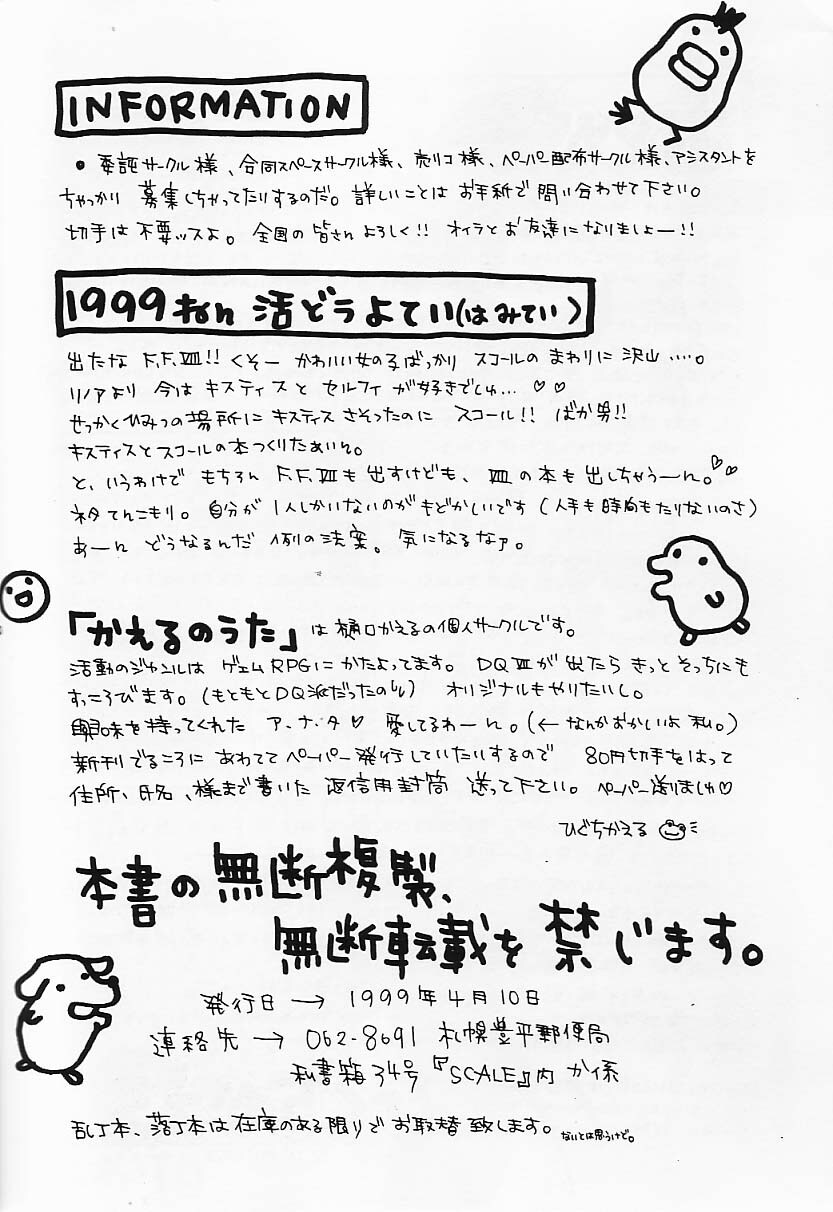 INFORMATION
•委託サークル様、合同スペースサークル様、売りコ様、ペーパー配布サークル様、アシスタントを
ちゃっかり 募集しちゃってたりするのだ。詳しいことは お手紙で 問い合わせて下さい。
切手は 不要ッスよ。 全国の 皆さん よろしく!! オイラと お友達に なりましょー!!
1999ねん 活どうよてい(はみてい)
出たな F.F.Ⅷ!! くそー かわいい女の子ばっかり スコールの まわりに 沢山 ‥‥。
リノアより 今は キスティスと セルフィ が 好きでしゅ… ♡♡
せっかくひみつの場所に キスティス さそったのに スコール!! ばか男!!
キスティスとスコールの本つくりたぁいん。
と、いうわけで もちろん F.F.Ⅶも 出すけども、 Ⅷの本も 出しちゃうーん。♡♡
ネタてんこもり。 自分が 1人しかいないのが もどかしいです (人手も時間もたりないのさ)
あーん どうなるんだ 例の法案。 気になるなァ。
「かえるのうた」は 樋口かえるの個人サークルです。
活動のジャンルは ゲェムRPGに かたよってます。 DQⅦが 出たら きっと そっちにも
すっころびます。(もともとDQ派だったのら) オリジナルもやりたいし。
興味を持ってくれた ア・ナ・タ♡ 愛してるわーん。(← なんかおかしいよ 私。)
新刊でるころに あわせて ペーパー発行していたいするので 80円切手をはって
住所、氏名、様まで書いた 返信用封筒 送って下さい。 ペーパー送りましゅ♡
ひぐちかえる
本書の 無断複製、
無断転載を 禁じます。
発行日 → 1999年4月10日
連絡先 → 062-8691 札幌豊平郵便局
私書箱34号『SCALE』内 か係
乱丁本、落丁本は在庫のある限りで お取替 致します。 ないとは思うけど。